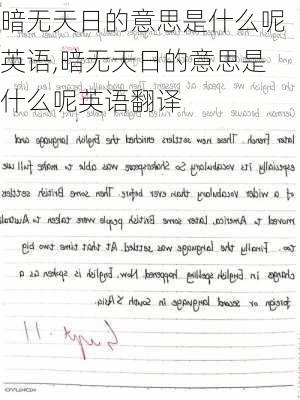 暗无天日的意思是什么呢
英语,暗无天日的意思是
什么呢英语翻译
later French. These new settlers enriched the English language and
especially its vocabulary. So Shakespeare was able to make full use
of a wider vocabulary than ever before. Then some British settlers
moved to America. Later some British people were taken to Australia
too. Finally the language was settled. At that time two big
changes in English spelling happened. Now, English is spoken as a
foreign or second language in South S Asia.